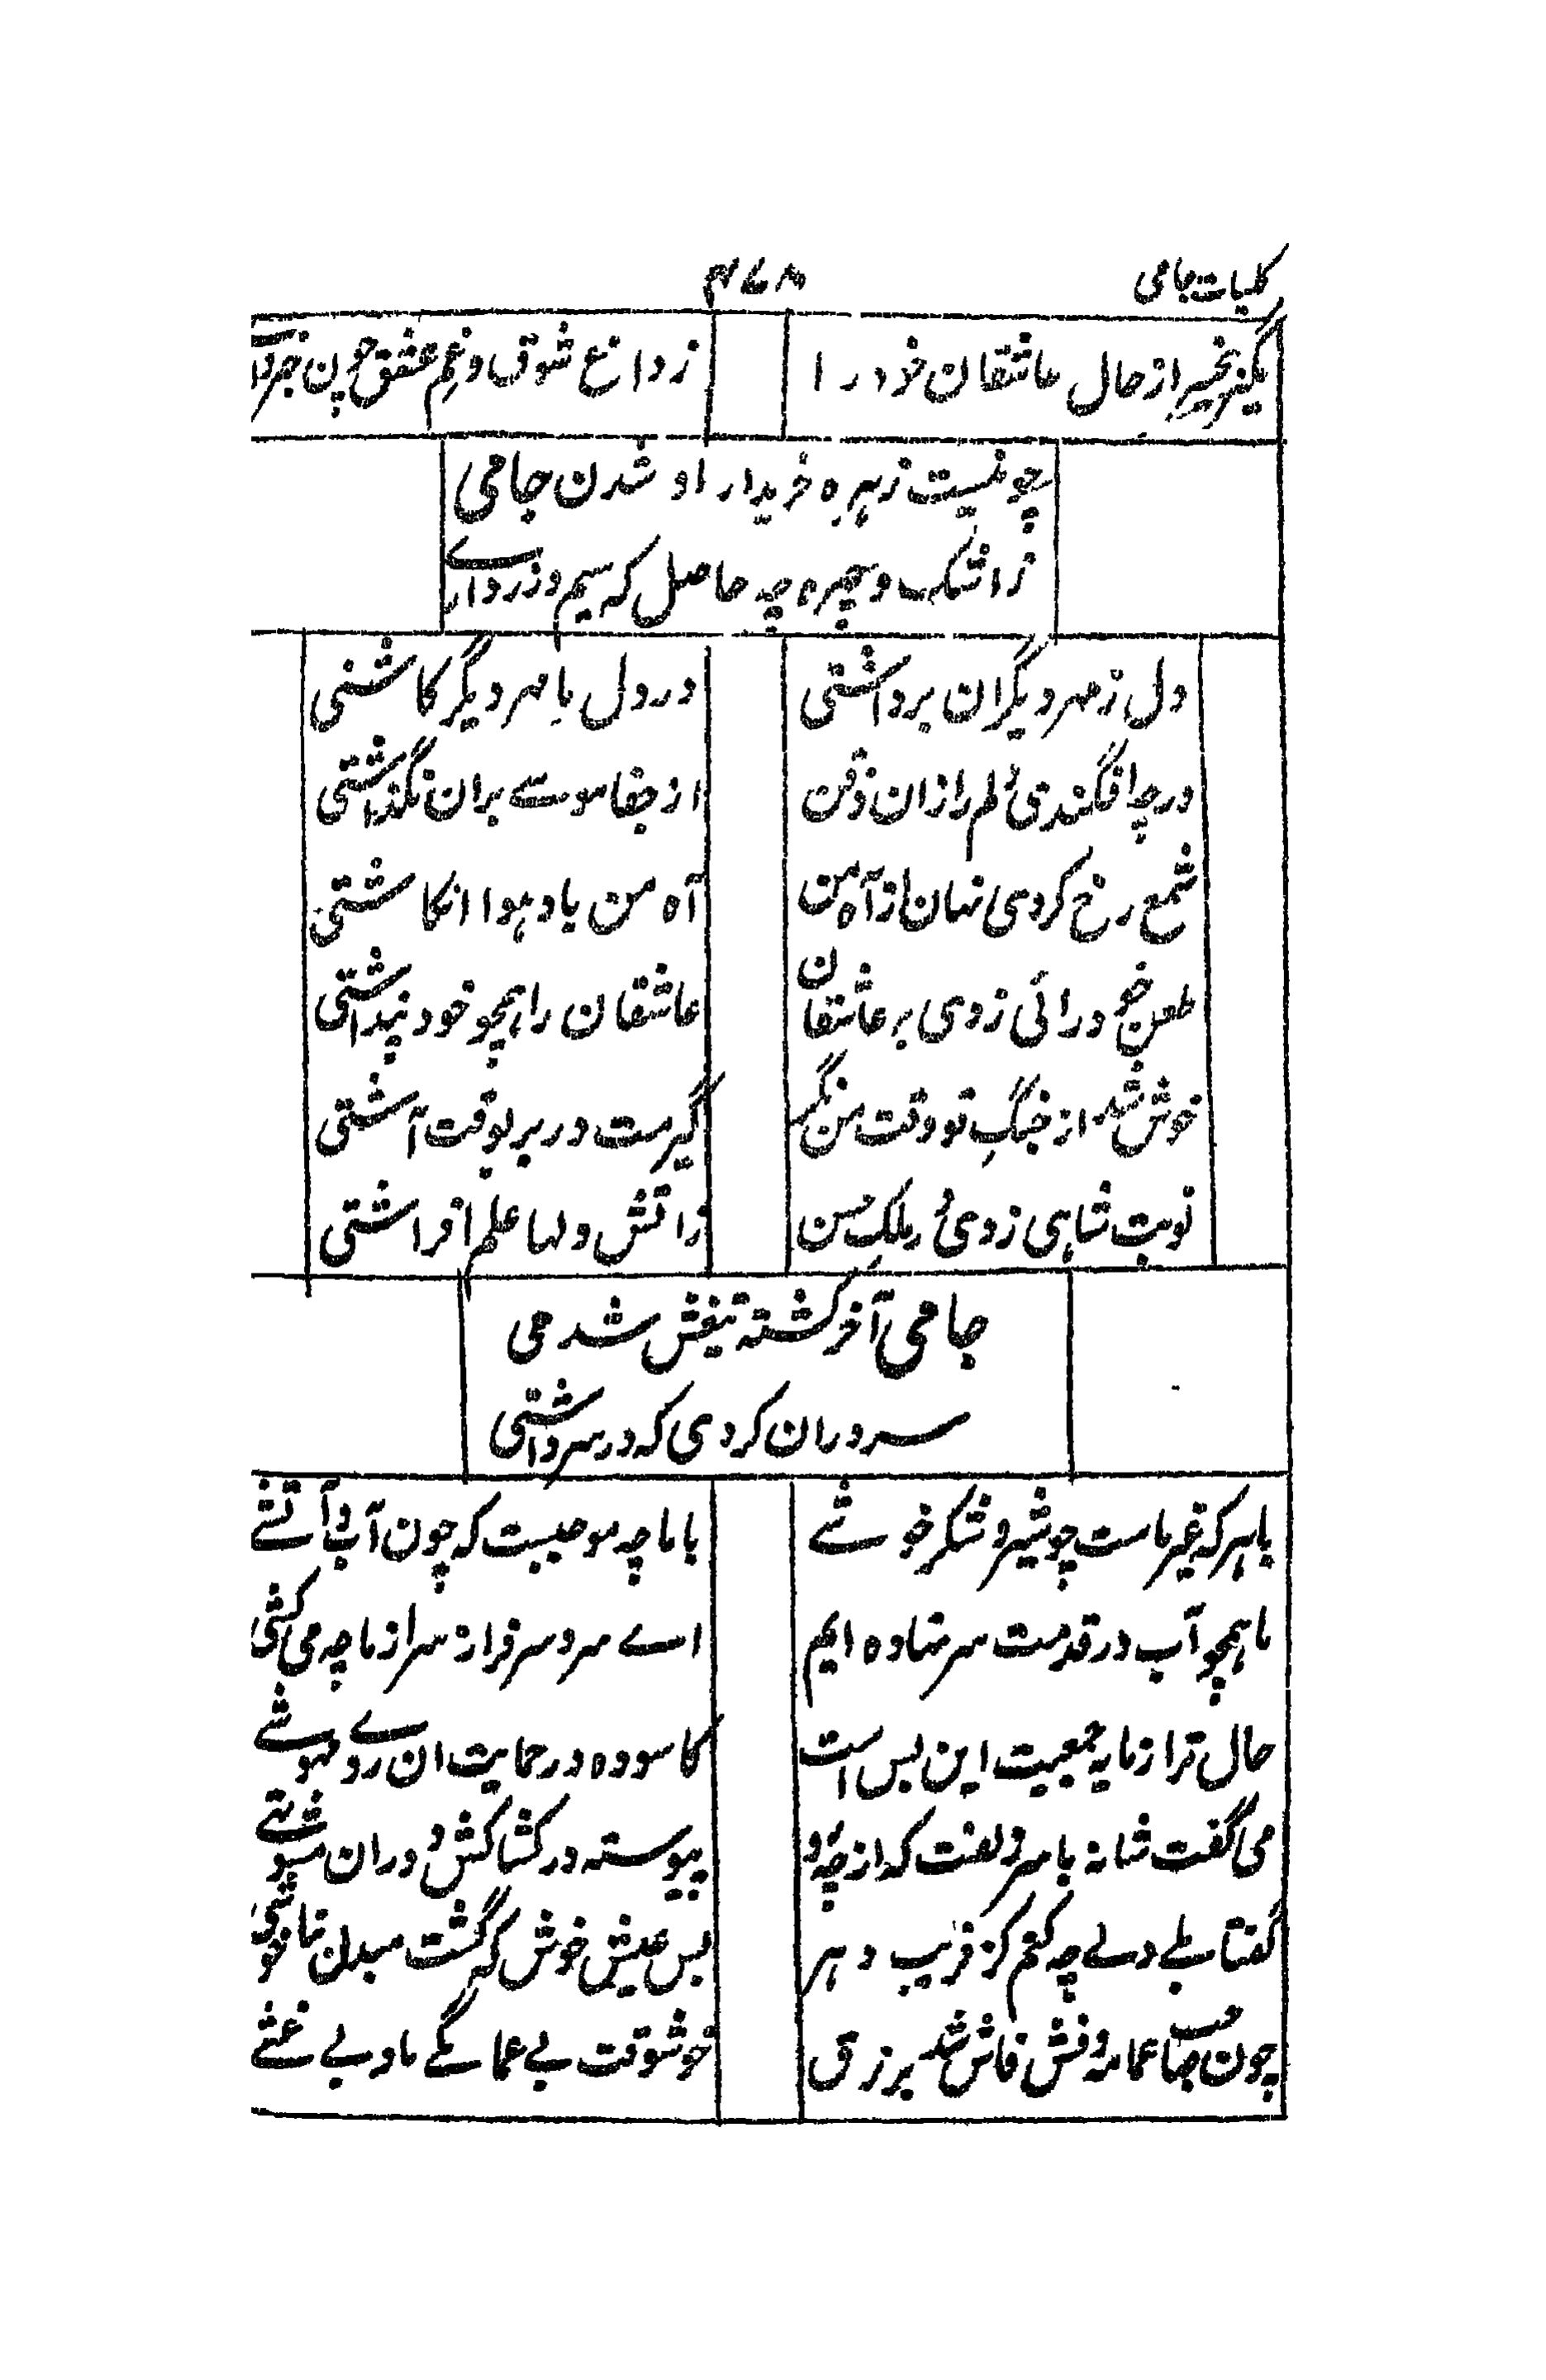 کلیات جامی
۴۷۸
مگیر بیخبر از حال عاشقان خود را
ز داغ شوق و غم عشق چون خبر داری
چو نیست زهره خریدار او شدن جامی
ز اشک و چهره چه حاصل که سیم و زر داری
دل ز مهر دیگران برداشتی
در دل ما مهر دیگر کاشتی
در چه افگندی دلم را زان ذقن
از جفا موے بران نگذاشتی
شمع رخ کردی نهان از آه من
آه من باد هوا انگاشتی
طعن خود رائی زدی بر عاشقان
عاشقان را همچو خود پنداشتی
خوش شد از جنگِ تو وقت من مگر
گیرمت در بر بوقت آشتی
نوبت شاهی زدی در ملکِ حسن
ز آتش دلها علم افراشتی
جامی آخر کشته تیغش شدی
سر دران کردی که در سر داشتی
با هر که غیر ماست چو شیر و شکر خوشے
با ما چه موجبست که چون آب و آتشے
ما همچو آب در قدمت سر نهاده ایم
اے سرو سرفراز سر از ما چه می کشی
حال ترا ز مایه جمعیت این بس است
کاسوده در حمایت ان روے مهوشے
می گفت شانه با سر زلفت که از چه رو
پیوسته در کشاکش و دران مشوشے
گفتا طے دلے چه کنم کز فریب دهر
بس عیش خوش که گشت مبدل بناخوشی
چون صاحب عمامه و فش فاش شد بر زق
خوشوقت بے عمامگے ما و بے فشے